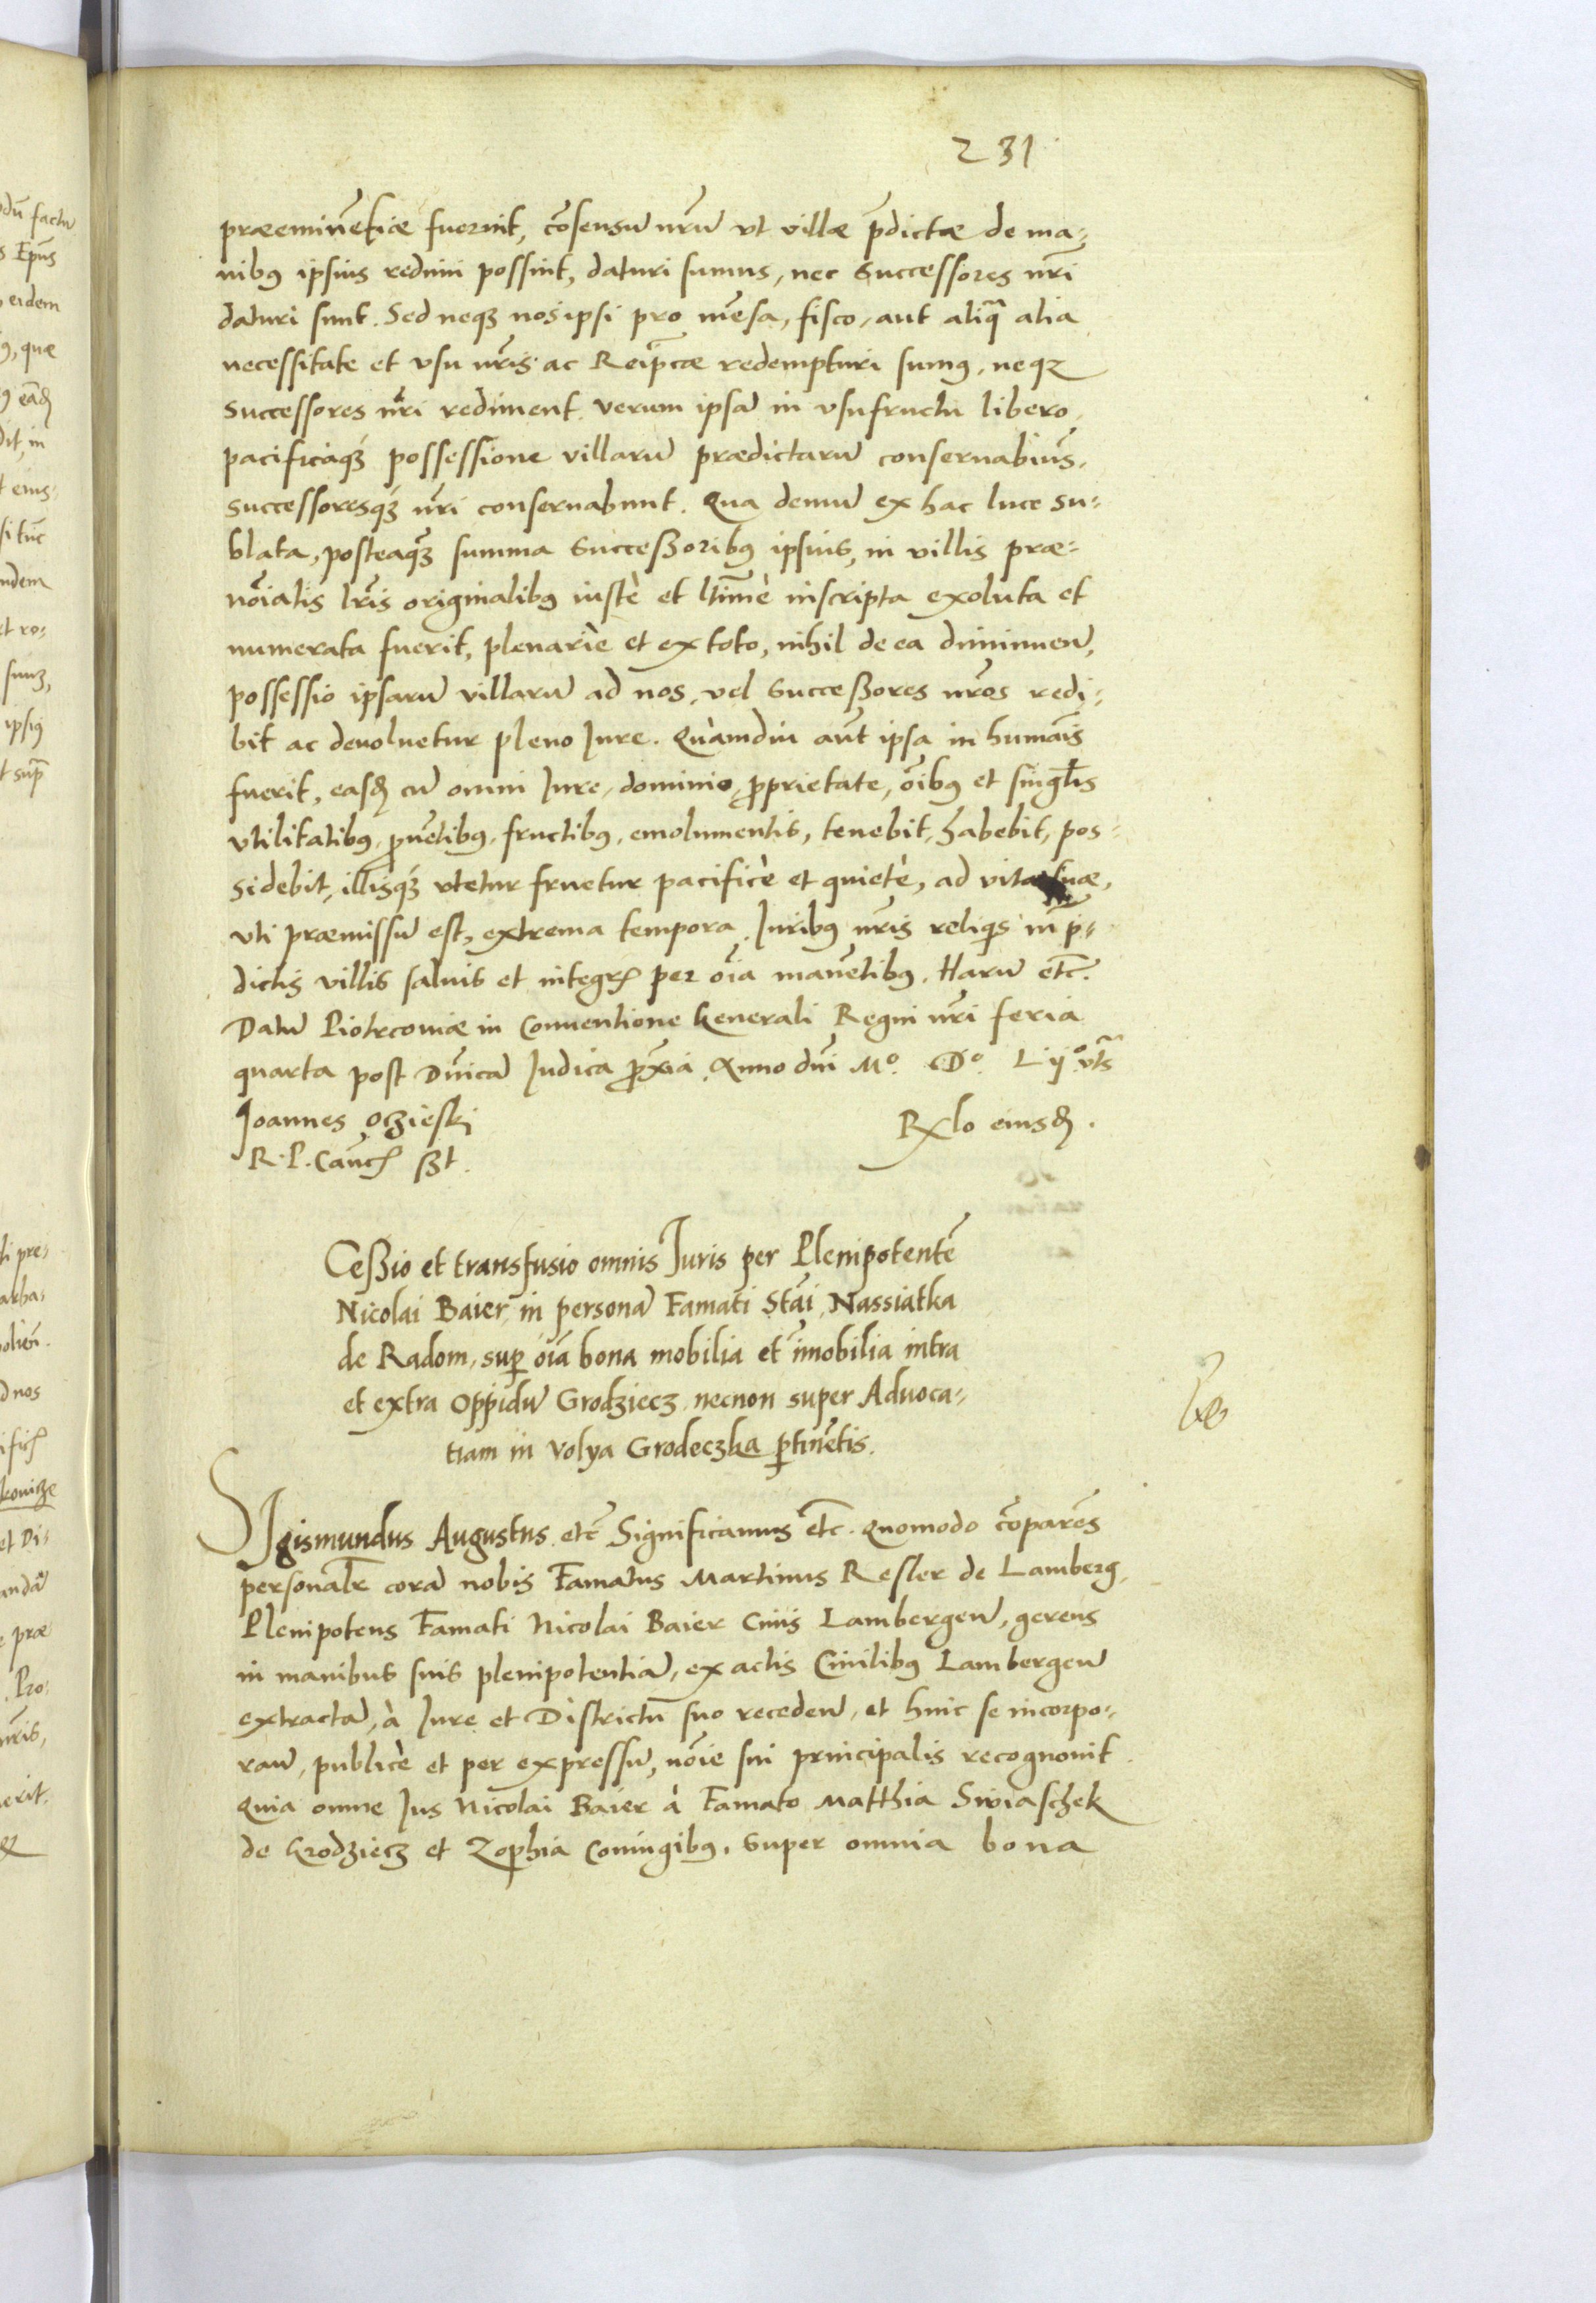 231
præeminẽtiæ fuerint, cõsensũ nr̃ũ vt villæ p̃dictæ de ma-
nibꝰ ipsius redimi possint, daturi sumus, nec Successores nr̃i
daturi sunt. Sed neqꝫ nosipsi pro mẽsa, fisco, aut aliq̃ alia
necessitate et vsu nr̃is ac Reip̃cæ redempturi sumꝰ, neqꝫ
Successores nr̃i rediment. verum ipsã in vsufructu libero,
pacificaqꝫ possessione villarũ prædictarũ conseruabimꝰ,
successoresqꝫ nr̃i conseruabunt. Qua demũ ex hac luce su-
blata, posteaqꝫ̃ summa Succeßoribꝰ ipsius, in villis præ-
nõiatis lr̃is originalibꝰ iustè et ltim̃è inscripta exoluta et
numerata fuerit, plenariè et ex toto, nihil de ea diminueñ,
possessio ipsarũ villarũ ad nos, vel Succeßores nr̃os redi-
bit ac deuoluetur pleno Jure. Quàmdiu aũt ipsa in humãis
fuerit, easd̃ cũ omni Jure, dominio, ꝓprietate, õibꝰ et singl̃is
vtilitatibꝰ, ꝓuẽtibꝰ, fructibꝰ, emolumentis, tenebit, habebit, pos-
sidebit, illisqꝫ vtetur fruetur pacificè et quietè, ad vitæ suæ,
vti præmissũ est, extrema tempora. Juribꝰ nr̃is reliqis in p̃-
dictis villis saluis et integr̃ per õia manẽtibꝰ. Harũ etc̃.
Datũ Piotrcouiæ in Conuentione Generali Regni nr̃i feria
quarta post Dñicã Judica ꝓxĩa. Anno dñi Mº. Dº. Lijº. vts̃
Joannes Oczieski
R. P. Cancˀ ßt.
Rx̃lo eiusd̃.
Ceßio et transfusio omnis Juris per Plenipotentẽ
Nicolai Baier, in personã Famati Stãi Nassiatka
de Radom, suꝑ õia bona mobilia et im̃obilia intra
et extra Oppidũ Grodziecz necnon super Aduoca-
tiam in Volya Grodeczka ꝑtinẽtis.
SJgismundus Augustus etc̃ Significamus etc̃. Quomodo cõparẽs
personalr̃ corã nobis Famatus Martinus Resler de Lamberg,
Plenipotens Famati Nicolai Baier Ciuis Lambergeñ, gerens
in manibus suis plenipotentiã, ex actis Ciuilibꝰ Lambergeñ
extractã, à Jure et Districtu suo recedeñ, et huic se incorpo-
rañ, publicè et per expressũ, nõie sui principalis recognouit.
Quia omne Jus Nicolai Baier à Famato Matthia Swiaschek
de Grodziecz et Zophia Coniugibꝰ, super omnia bona